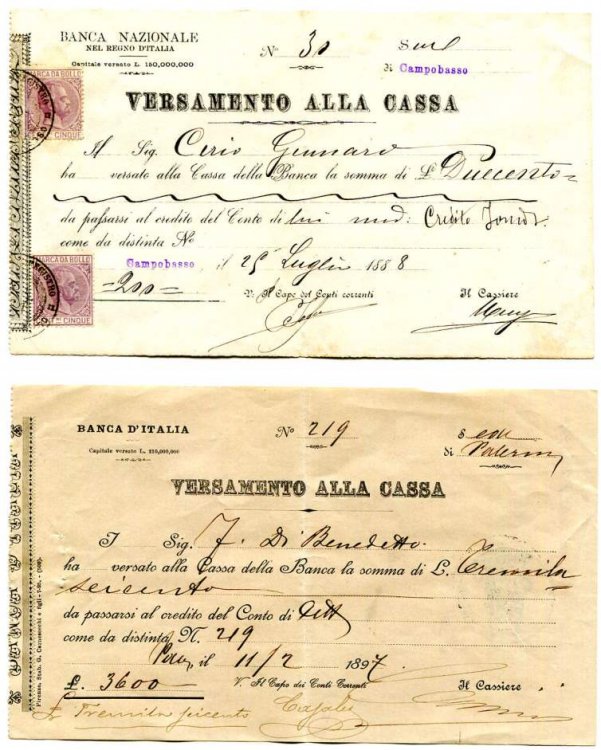 BANCA NAZIONALE
NEL REGNO D'ITALIA
Capitale versato L. 150,000,000
No 30 S
di Campobasso
MARCA DA BOLLO
CINQUE
VERSAMENTO ALLA CASSA
Il Sig. Cirio Gennaro
ha versato alla Cassa della Banca la somma di L. Duecento
da passarsi al credito del Conto di lui mod: Credito
come da distinta No
Campobasso il 25 Luglio 1888
MARCA DA BOLLO
REGISTRO
CINQUE
200
V. Il Capo dei Conti correnti
Il Cassiere
BANCA D'ITALIA
Capitale versato L. 210,000,000
No 219
Sede
di Palermo
VERSAMENTO ALLA CASSA
I Sig. F. Di Benedetto
ha versato alla Cassa della Banca la somma di L. Tremila
seicento
da passarsi al credito del Conto di
come da distinta N. 219
il 11/2 1897
£. 3600
V. Il Capo dei Conti Correnti
Il Cassiere
Tremila seicento
Firenze, Stab. G. Carnesecchi e figli